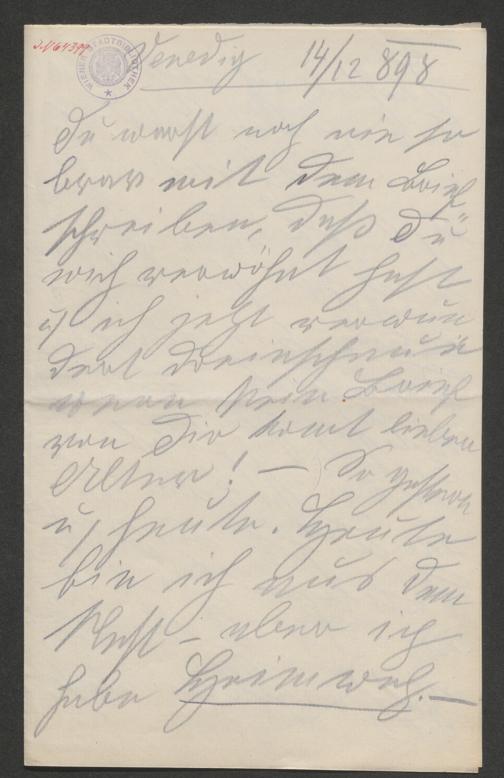 J.N 64399
WIENER STADTBIBLIOTHEK
Venedig 14/12 898
Du warst noch nie so
brav mit dem Brief
schreiben, daß Du
mich verwöhnt hast
u ich jetzt verwun
dert dreinschaue
wenn kein Brief
von Dir komt lieber
Alter! — So gestern
u, heute. Heute
bin ich aus dem
Nest – aber ich
habe Heimweh. —